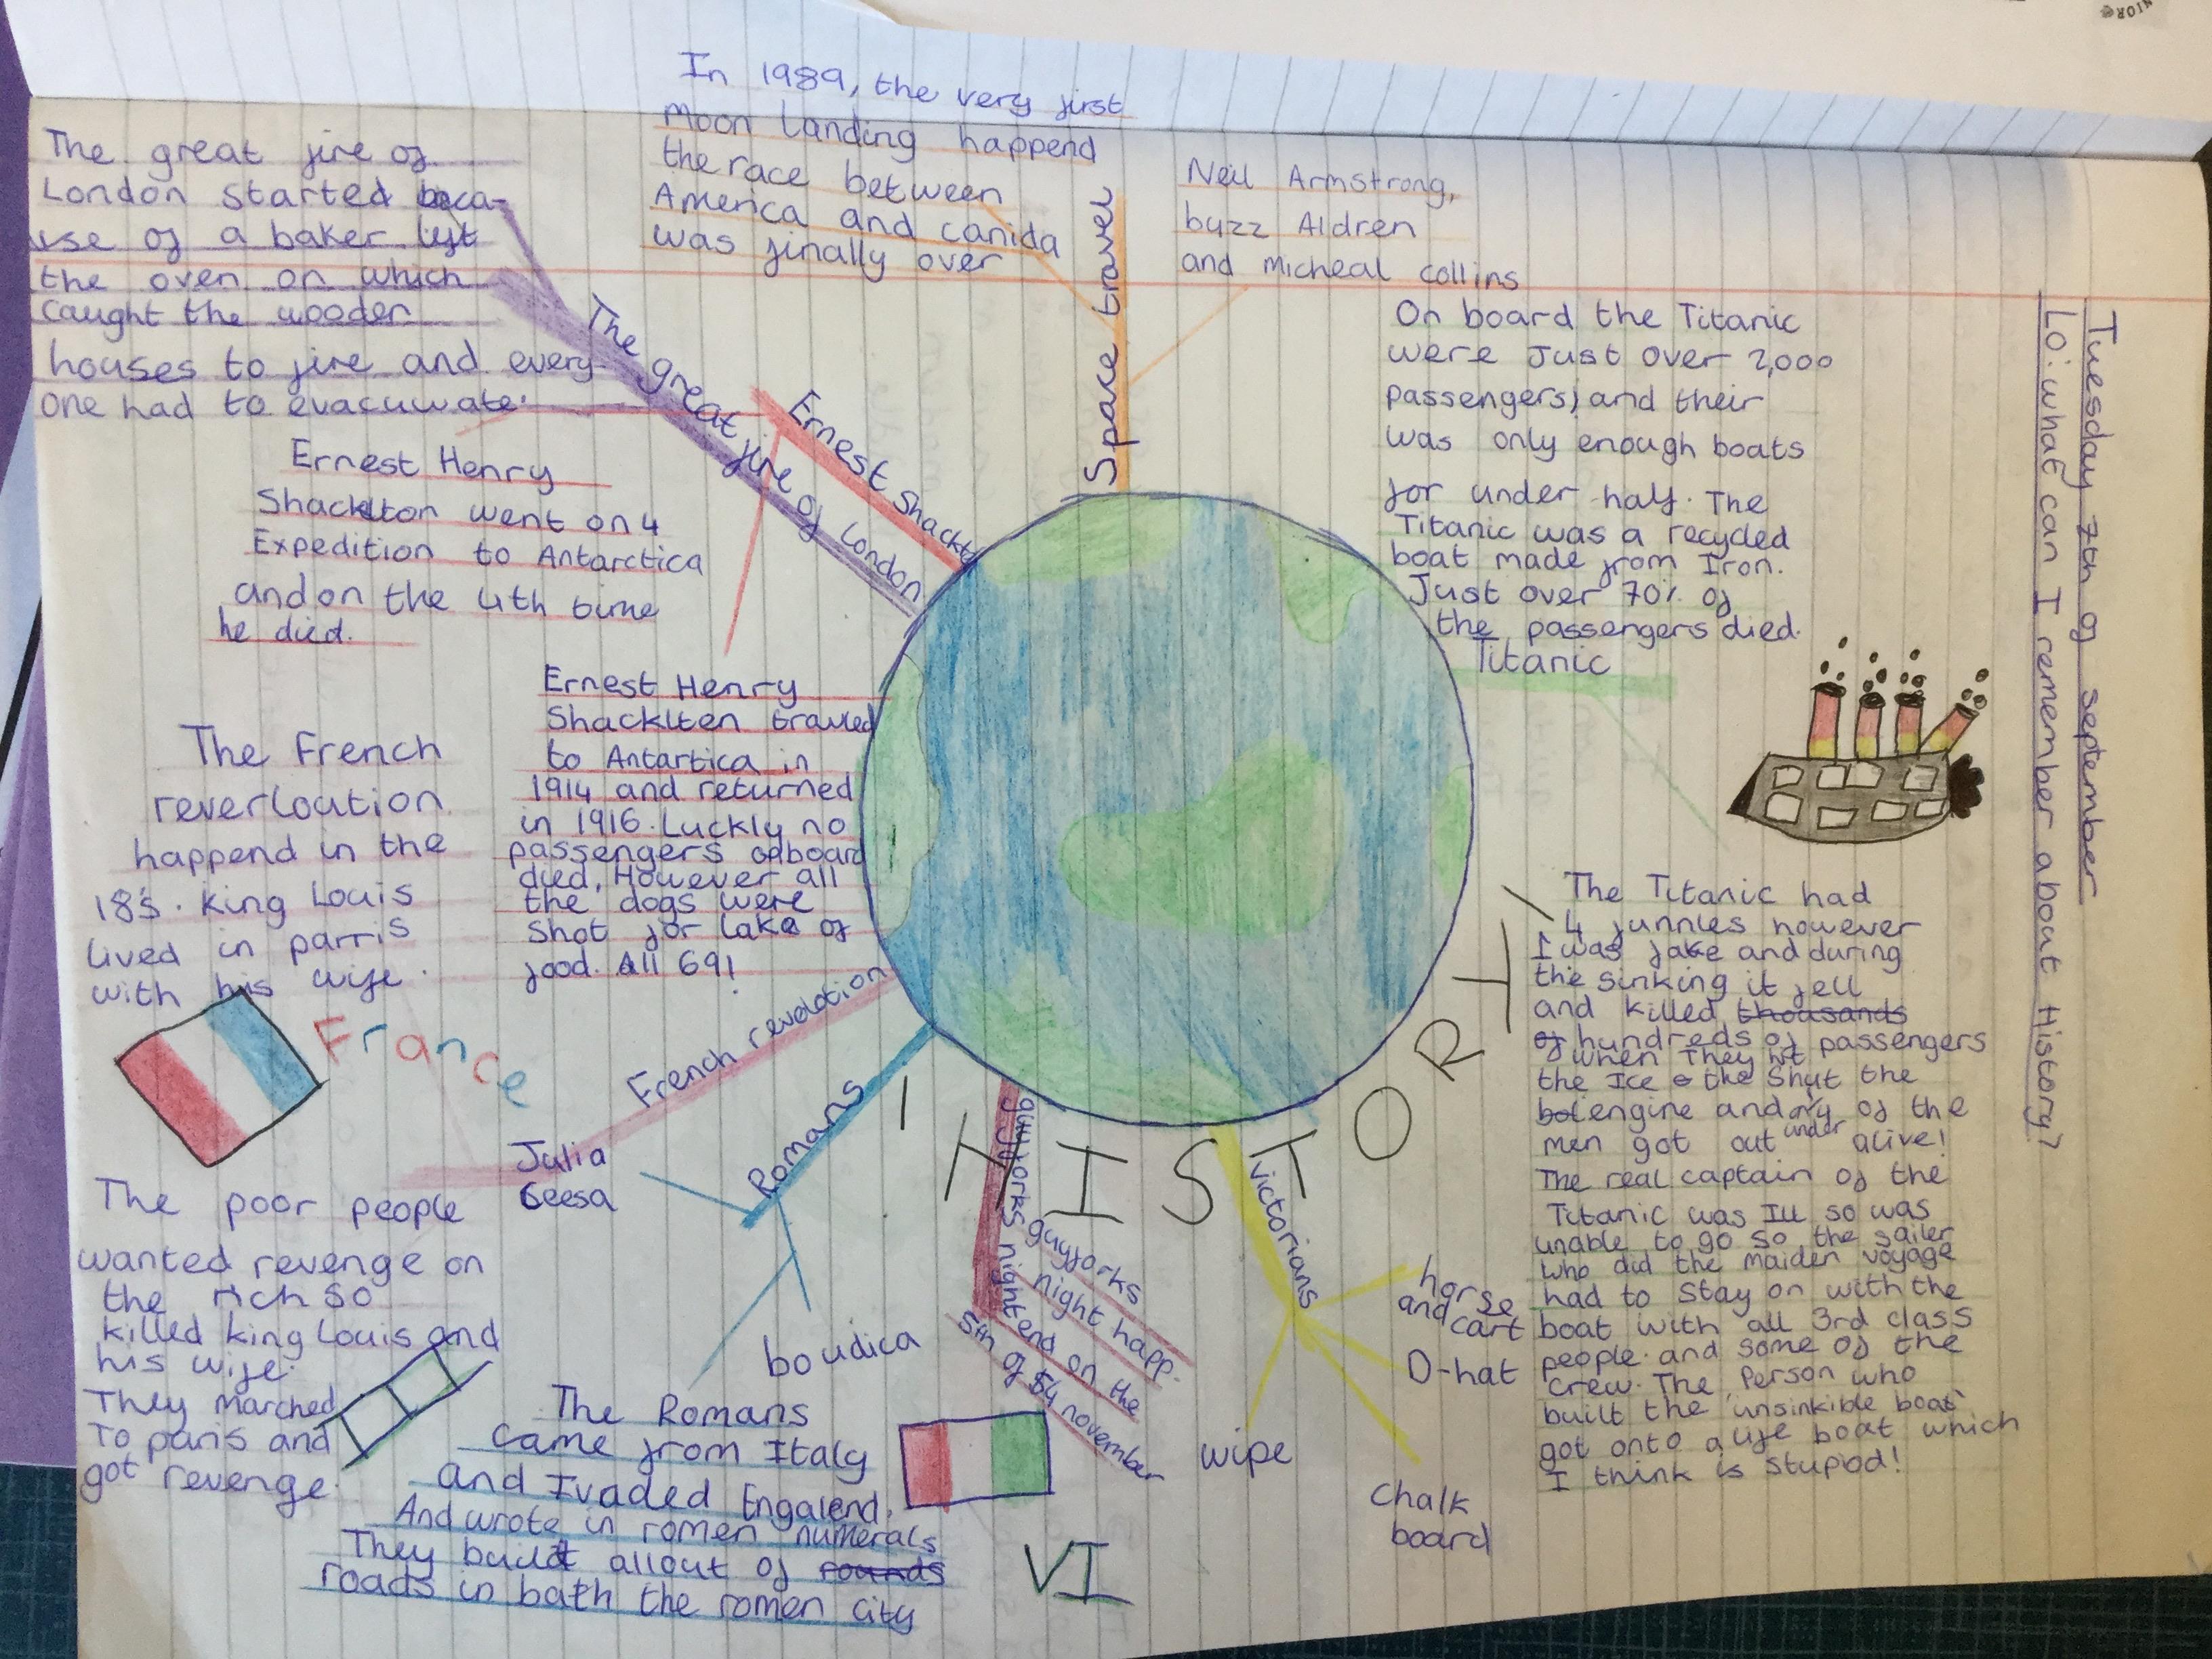 Tuesday 7th of september
LO: what can I remember about History?
In 1989, the very first
Moon landing happend
the race between
America and canida
was finally over
Space travel
Neil Armstrong,
buzz Aldren
and Micheal collins
The great fire of
London started beca-
use of a baker left
the oven on which
caught the wooden
houses to fire and every-
one had to evacuwate.
The great fire of London
Ernest Shackt
Ernest Henry
Shacklton went on 4
Expedition to Antarctica
and on the 4th time
he died.
Ernest Henry
Shacklten travled
to Antartica in
1914 and returned
in 1916. Luckly no
passengers onboard
died, However all
the dogs were
shot for lake of
food. All 69!
On board the Titanic
were Just over 2,000
passengers, and their
was only enough boats
for under half. The
Titanic was a recycled
boat made from Iron.
Just over 70% of
the passengers died.
Titanic
The Titanic had
4 funnles however
1 was fake and during
the sinking it fell
and killed thousands
of hundreds of passengers
when They hit
the Ice the Shut the
bol engine and of the
men got out under alive!
The real captain of the
Titanic was Ill so was
unable to go so the sailer
who did the maiden voyage
had to stay on with the
boat with all 3rd class
people. and some of the
crew. The Person who
built the 'unsinkible boat'
got onto a life boat which
I think is stupod!
The French
reverloution
happend in the
18s. King Louis
lived in parris
with his wife.
France
French revolotion
The poor people
wanted revenge on
the rich so
killed king Louis and
his wife.
They marched
To paris and
got revenge.
Romans
Julia
Ceesa
boudica
The Romans
came from Italy
and Ivaded Engalend.
And wrote in romen numerals
They build allout of rounds
roads in bath the romen city
VI
HISTORY
guy forks night
guyforks
night happ-
end on the
5th of november
victorians
horse
and cart
D-hat
wipe
chalk
board